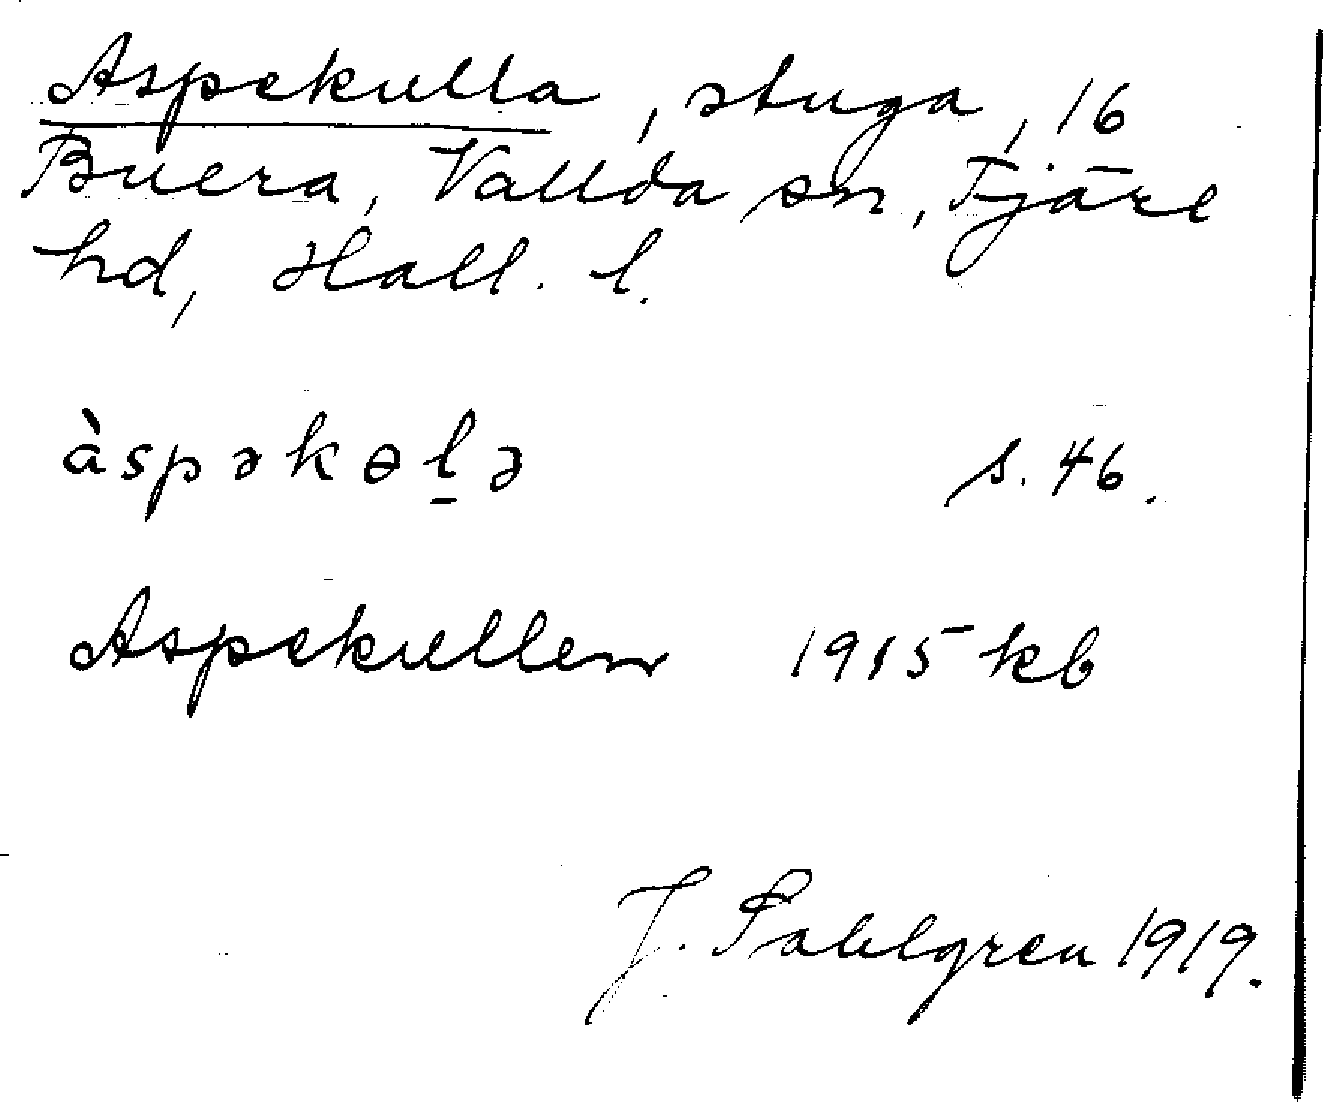 Aspekulla, stuga, 16
Buera, Vallda sn, Fjäre
hd, Hall. l.
àspəkɵl̠ə s. 46.
Aspekullen 1915 kb
J. Sahlgren 1919.